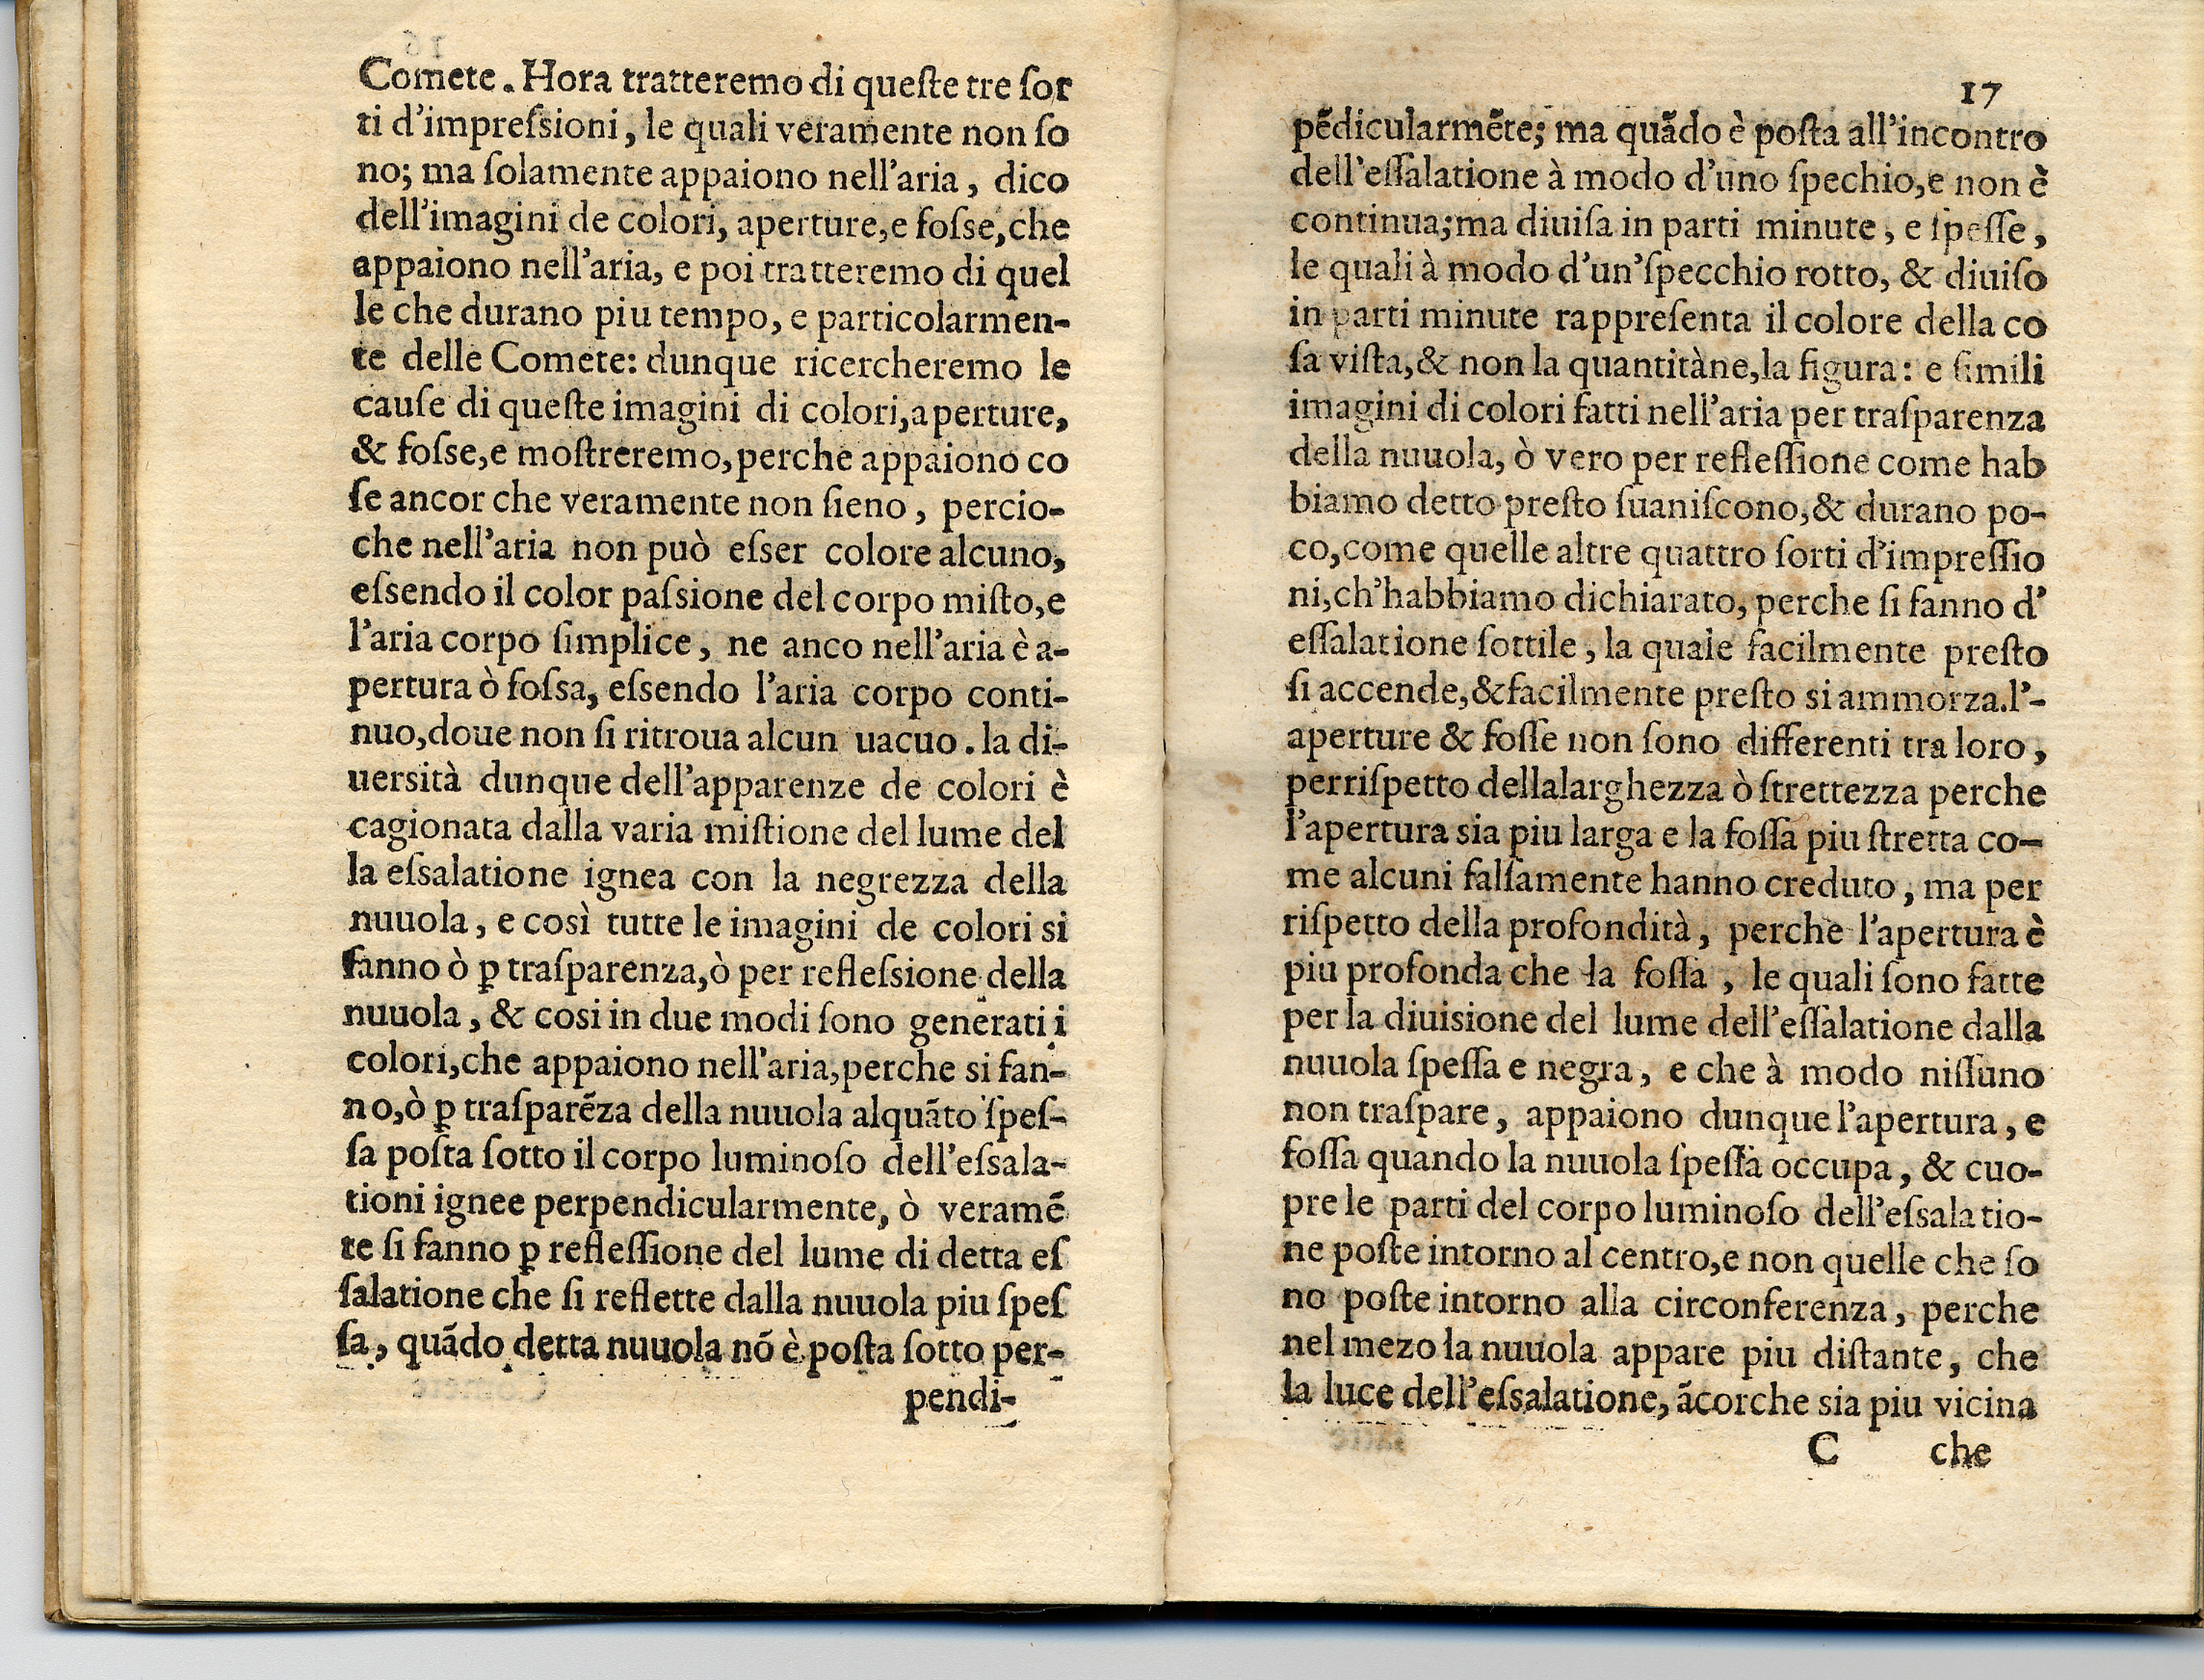 Comete. Hora tratteremo di queſte tre ſor
ti d'impreſsioni, le quali veramente non ſo
no; ma ſolamente appaiono nell'aria, dico
dell'imagini de colori, aperture,e foſse,che
appaiono nell'aria, e poi tratteremo di quel
le che durano piu tempo, e particolarmen-
te delle Comete: dunque ricercheremo le
cauſe di queſte imagini di colori,aperture,
& foſse,e moſtreremo,perche appaiono co
ſe ancor che veramente non ſieno, percio-
che nell'aria non può eſser colore alcuno,
eſsendo il color paſsione del corpo miſto,e
l'aria corpo ſimplice, ne anco nell'aria è a-
pertura ò foſsa, eſsendo l'aria corpo conti-
nuo,doue non ſi ritroua alcun uacuo. la di-
uersità dunque dell'apparenze de colori è
cagionata dalla varia miſtione del lume del
la eſsalatione ignea con la negrezza della
nuuola, e così tutte le imagini de colori si
fanno ò ꝑ traſparenza,ò per refleſsione della
nuuola, & cosi in due modi ſono generati i
colori,che appaiono nell'aria,perche si fan-
no,ò ꝑ traſparẽza della nuuola alquãto ſpeſ-
ſa poſta ſotto il corpo luminoſo dell'eſsala-
tioni ignee perpendicularmente, ò veramẽ
te ſi fanno ꝑ refleſſione del lume di detta eſ
ſalatione che ſi reflette dalla nuuola piu ſpeſ
ſa, quãdo detta nuuola nõ è poſta ſotto per-
pendi-
17
pẽdicularmẽte; ma quãdo è poſta all'incontro
dell'eſſalatione à modo d'uno ſpechio,e non è
continua;ma diuiſa in parti minute, e ſpeſſe,
le quali à modo d'un'ſpecchio rotto, & diuiſo
in parti minute rappreſenta il colore della co
ſa viſta,& non la quantitàne,la figura: e ſimili
imagini di colori fatti nell'aria per traſparenza
della nuuola, ò vero per refleſſione come hab
biamo detto preſto ſuaniſcono,& durano po-
co,come quelle altre quattro ſorti d'impreſſio
ni,ch'habbiamo dichiarato, perche ſi fanno d'
eſſalatione ſottile, la quale facilmente preſto
ſi accende,&facilmente preſto si ammorza.l'-
aperture & foſſe non ſono differenti tra loro,
perriſpetto dellalarghezza ò ſtrettezza perche
l'apertura sia piu larga e la foſſa piu ſtretta co-
me alcuni falſamente hanno creduto, ma per
riſpetto della profondità, perche l'apertura è
piu profonda che la foſſa, le quali ſono fatte
per la diuisione del lume dell'eſſalatione dalla
nuuola ſpeſſa e negra, e che à modo niſſuno
non traſpare, appaiono dunque l'apertura, e
foſſa quando la nuuola ſpeſſa occupa, & cuo-
pre le parti del corpo luminoſo dell'eſsalatio-
ne poſte intorno al centro,e non quelle che ſo
no poſte intorno alla circonferenza, perche
nel mezo la nuuola appare piu diſtante, che
la luce dell'eſsalatione, ãcorche sia piu vicina
C che